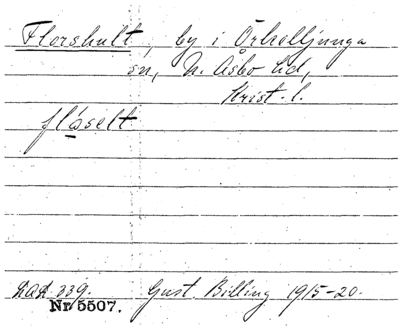 Florshult, by i Örkelljunga
sn, N. Åsbo hd,
Krist. l.
flåselt
DAL 339. Gust. Billing 1915-20.
Nr 5507.